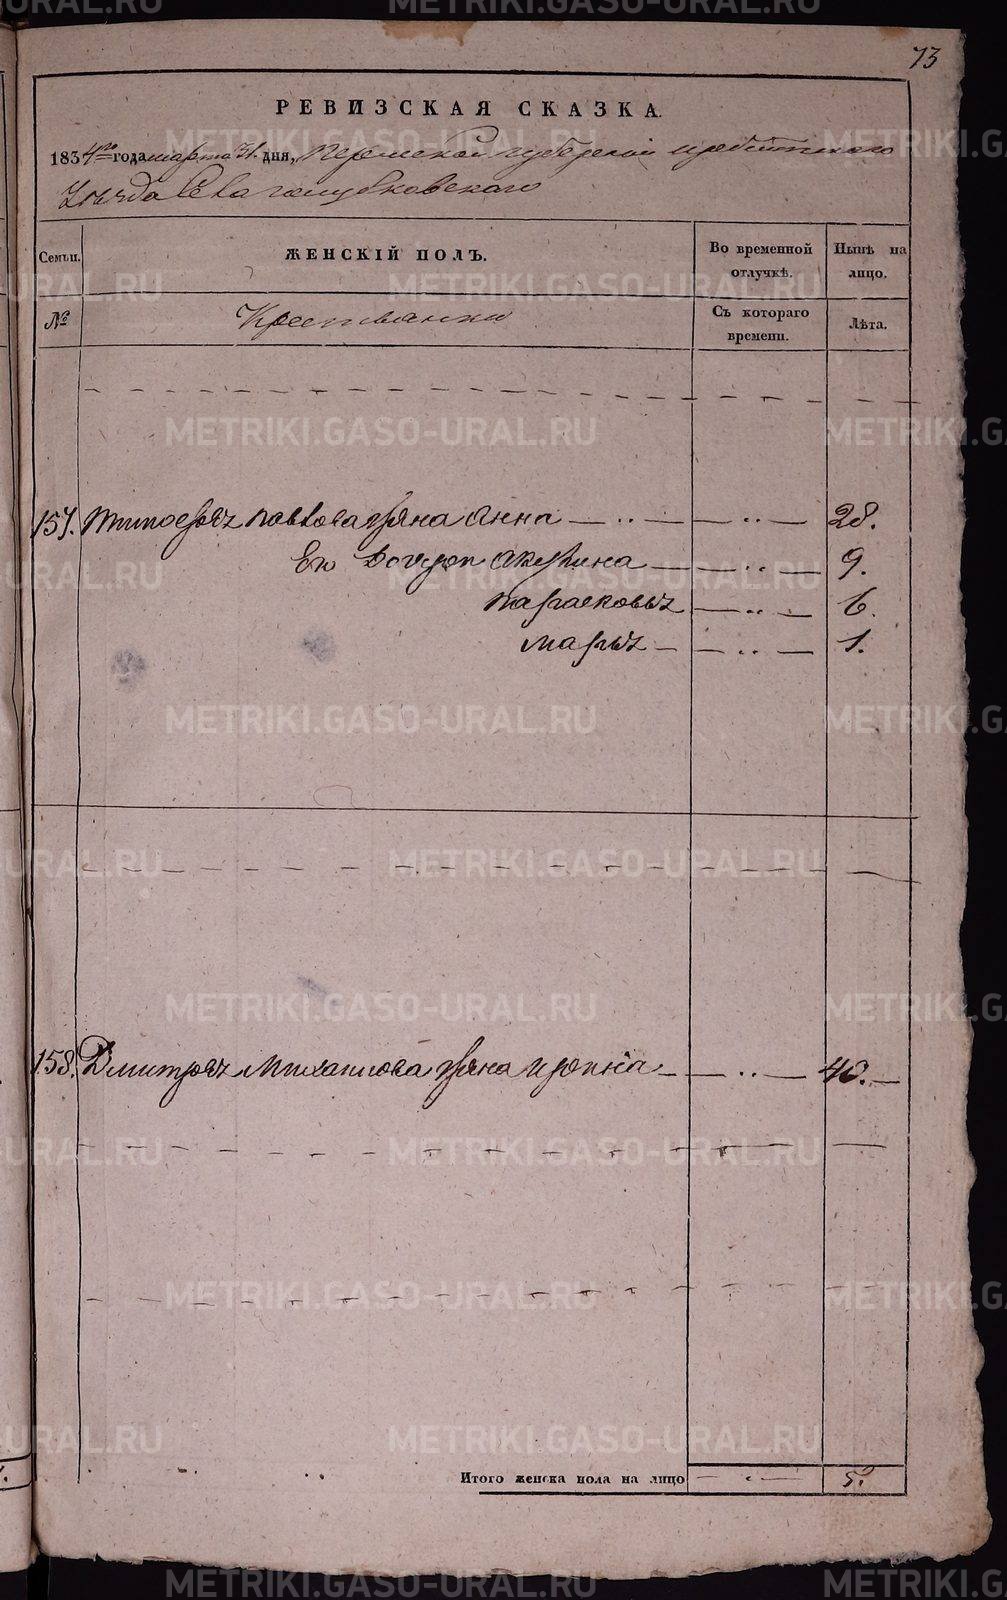 73
РЕВИЗСКАЯ СКАЗКА.
1834го года марта 31. дня, Пермской губернии Ирбитского
Уезда Села голубковского
Семьи. ЖЕНСКІЙ ПОЛЪ. Во временной отлучкѣ. Нынѣ на лицо.
№ Крестьянки Съ котораго времени. Лѣта.
157. Тимофея Павлова жена Анна — .. — — .. — 28.
Ея дочери Акулина — — .. — 9.
Парасковья — .. — 6.
Марья — — .. — 1.
158. Дмитрея Михаилова жена Ирина — — .. — 40. —
Итого женска пола на лицо — . — 5.
METRIKI.GASO-URAL.RU